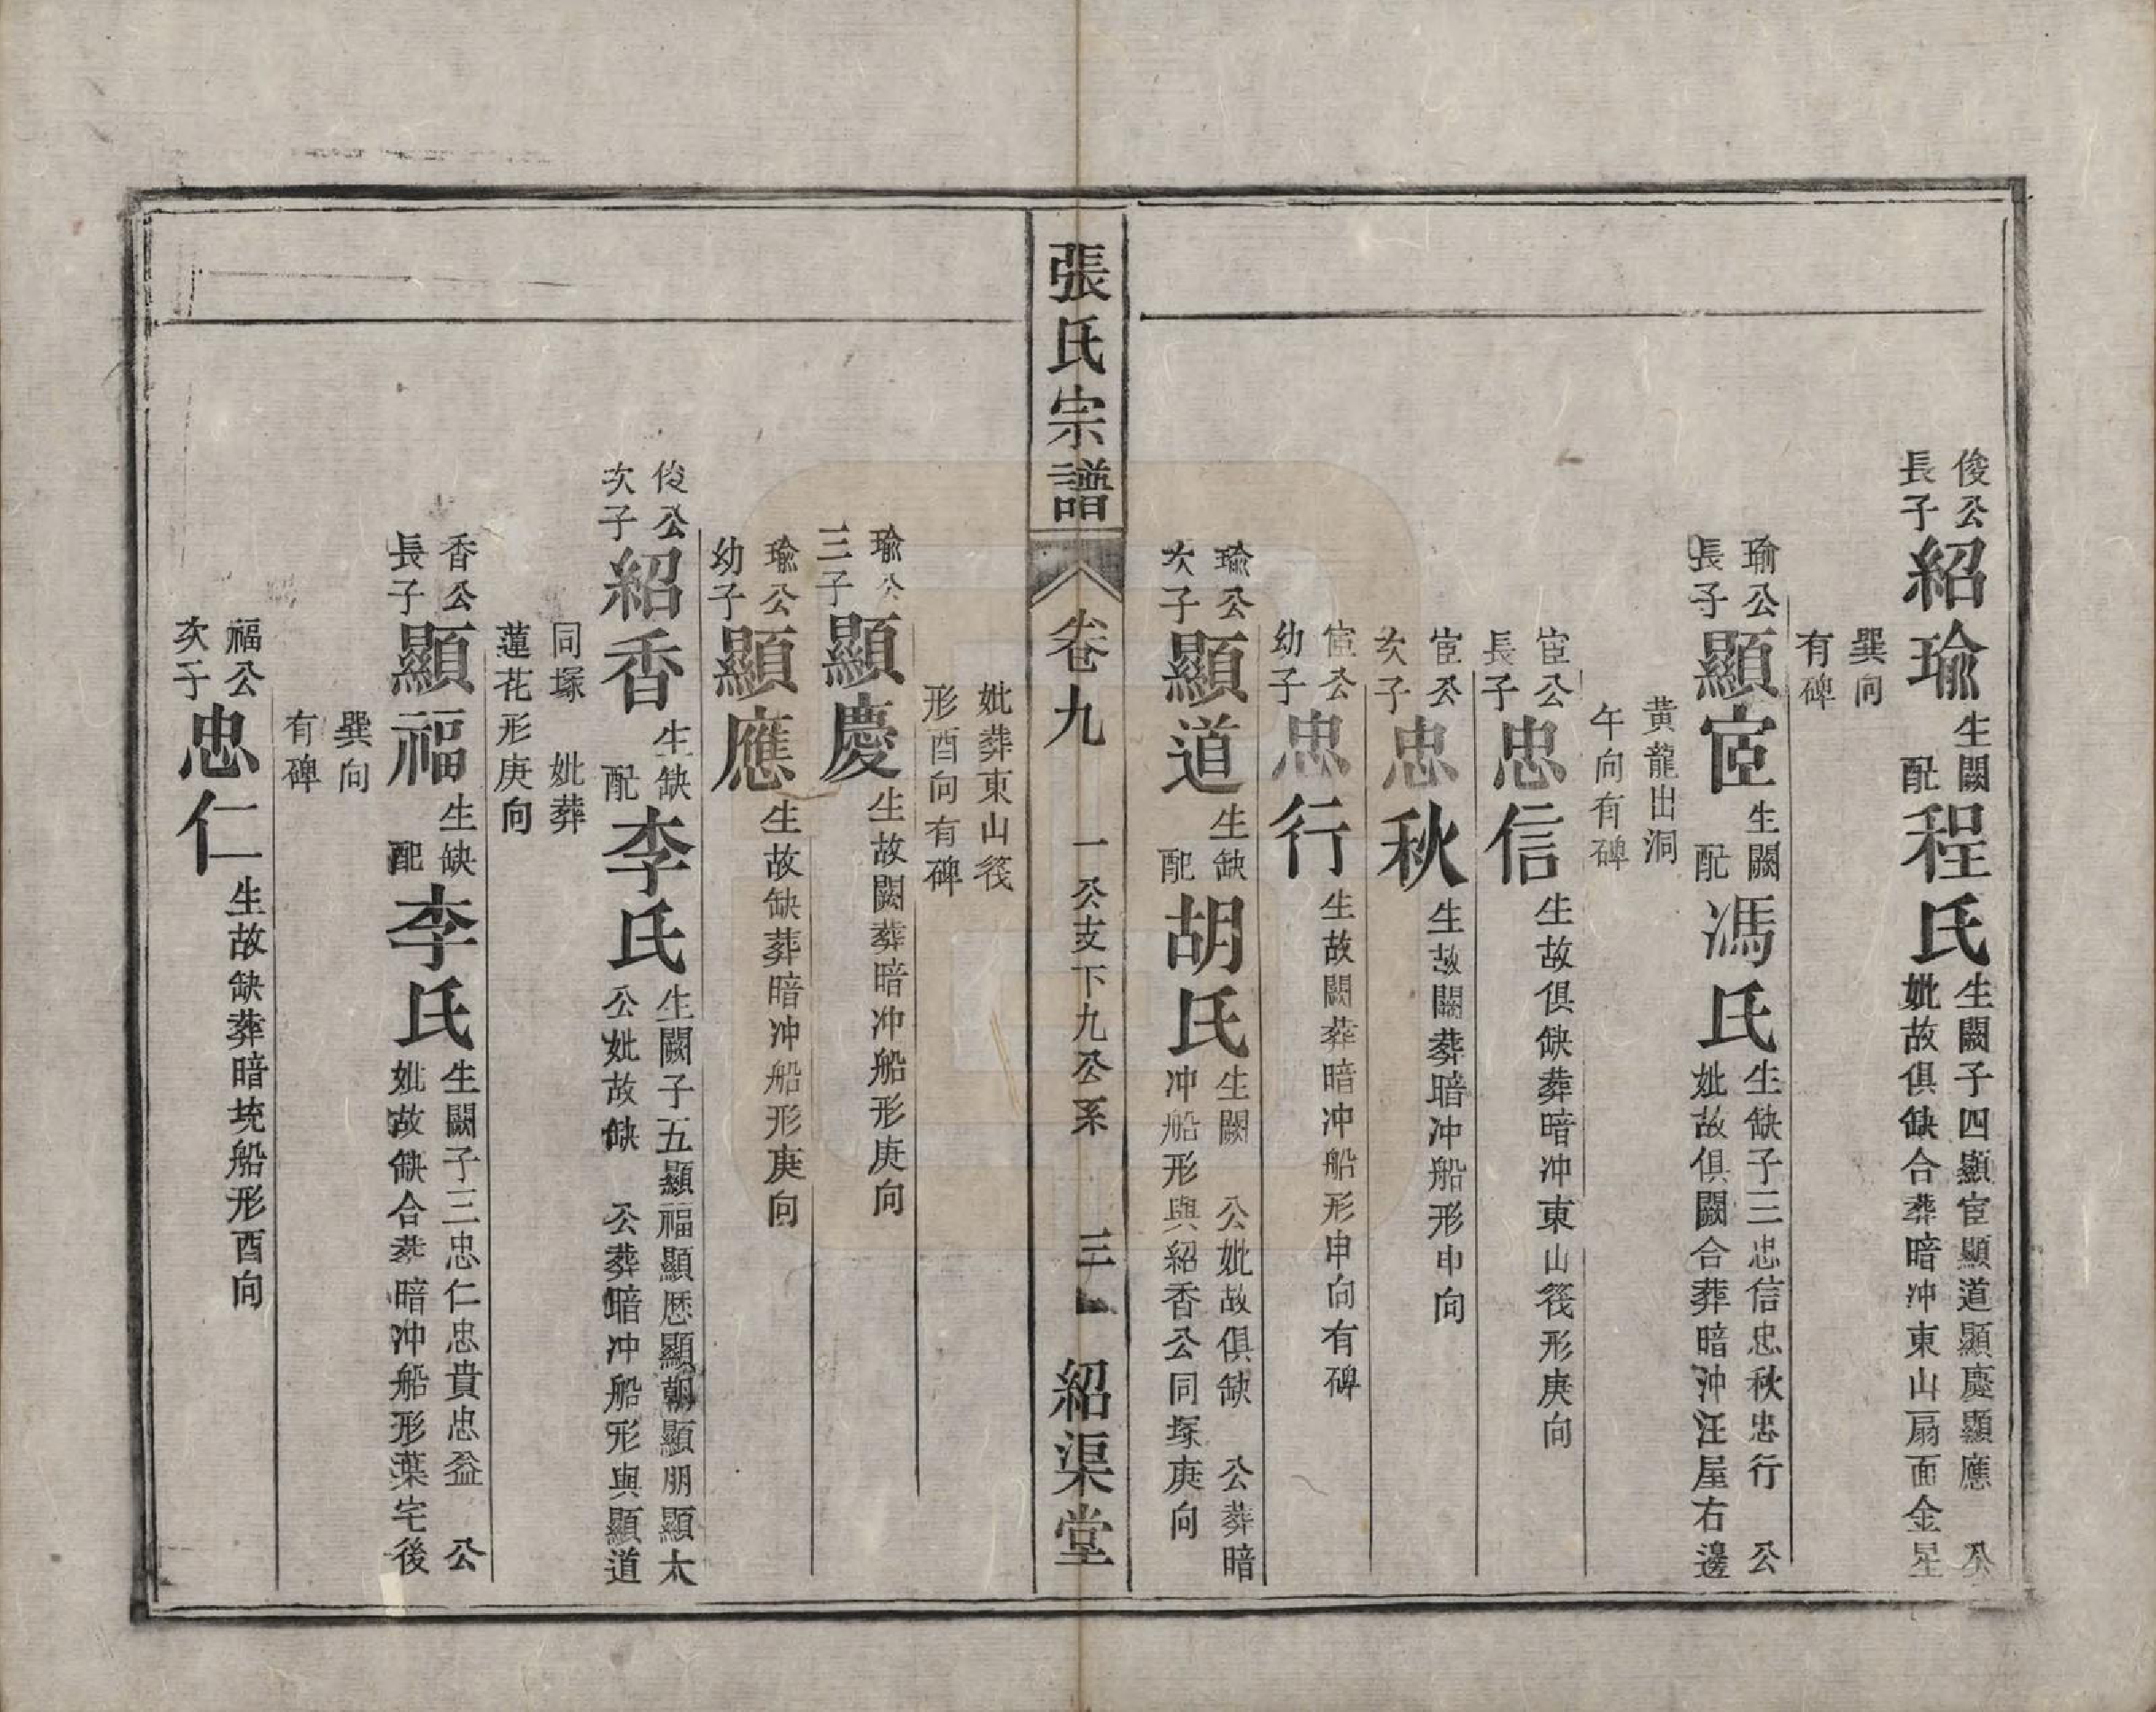 俊公長子紹瑜生闕配程氏生闕子四顯宦顯道顯慶顯應 公妣故俱缺合葬暗冲東山扇面金星
巽向有碑
瑜公長子顯宦生闕配馮氏生缺子三忠信忠秋忠行 公妣故俱闕合葬暗沖汪屋右邊
黄龍出洞午向有碑
宦公長子忠信生故俱缺葬暗冲東山筏形庚向
宦公次子忠秋生故闕葬暗冲船形申向
宦公幼子忠行生故闕葬暗冲船形申向有碑
瑜公次子顯道生缺配胡氏生闕 公妣故俱缺 公葬暗冲船形與紹香公同塚庚向
張氏宗譜 卷九 一公支下九公系 三 紹渠堂
妣葬東山筏形酉向有碑
瑜公三子顯慶生故闕葬暗冲船形庚向
瑜公幼子顯應生故缺葬暗冲船形庚向
俊公次子紹香生缺配李氏生闕子五顯福顯歷顯朝顯朋顯太公妣故缺 公葬暗冲船形與顯道
同塚 妣葬蓮花形庚向
香公長子顯福生缺配李氏生闕子三忠仁忠貴忠益 公妣故缺合葬暗冲船形葉宅後
巽向有碑
福公次子忠仁生故缺葬暗塝船形酉向